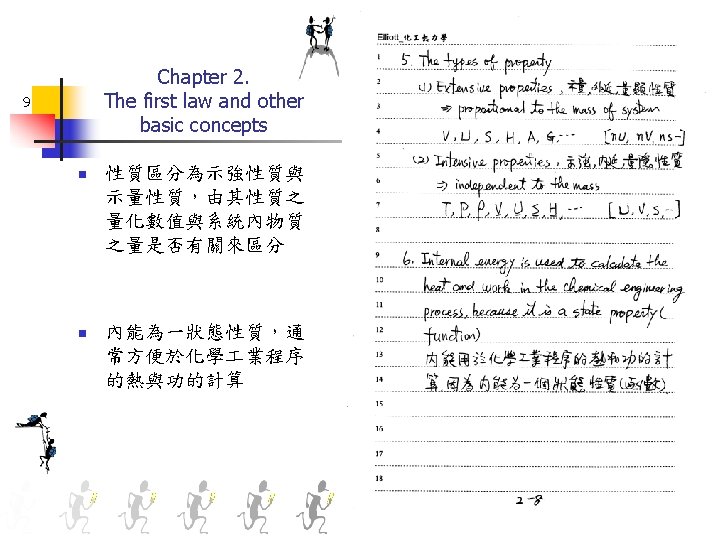 9
Chapter 2.
The first law and other
basic concepts
性質區分為示強性質與
示量性質，由其性質之
量化數值與系統內物質
之量是否有關來區分
內能為一狀態性質，通
常方便於化學工業程序
的熱與功的計算
Elliott_化工熱力學
1 5. The types of property
2 (1) Extensive properties, 示量, 外延, 量顯性質
3 ⇒ proportional to the mass of system
4 V, U, S, H, A, G, ⋯ [nU, nV, nS⋯]
5 (2) Intensive properties, 示強, 內延, 量隱, 性質
6 ⇒ independent to the mass
7 T, P, ρ, V, U, S, H, ⋯ [U, V, S, ⋯]
8
9 6. Internal energy is used to calculate the
10 heat and work in the chemical engineering
11 process, because it is a state property (
12 function)
13 內能用於化學工業程序的熱和功的計
14 算因為內能為一個狀態性質(函數)
15
16
17
18
2-8